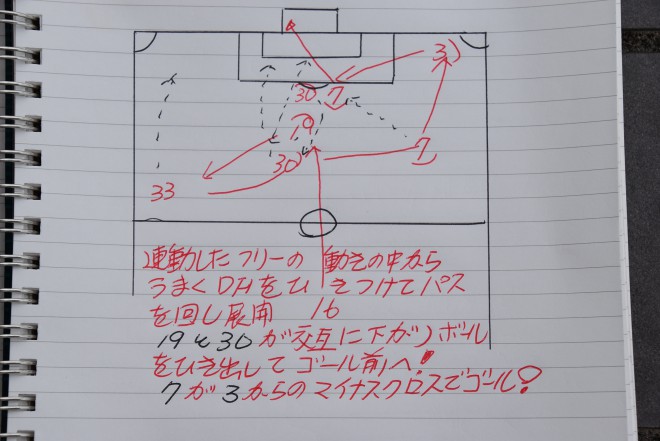 3
30 7
19
30 7
33
連動したフリーの動きの中から
うまくDFをひきつけてパス
を回し展開 16
19と30が交互に下がりボール
をひき出してゴール前へ!
7が3からのマイナスクロスでゴール!